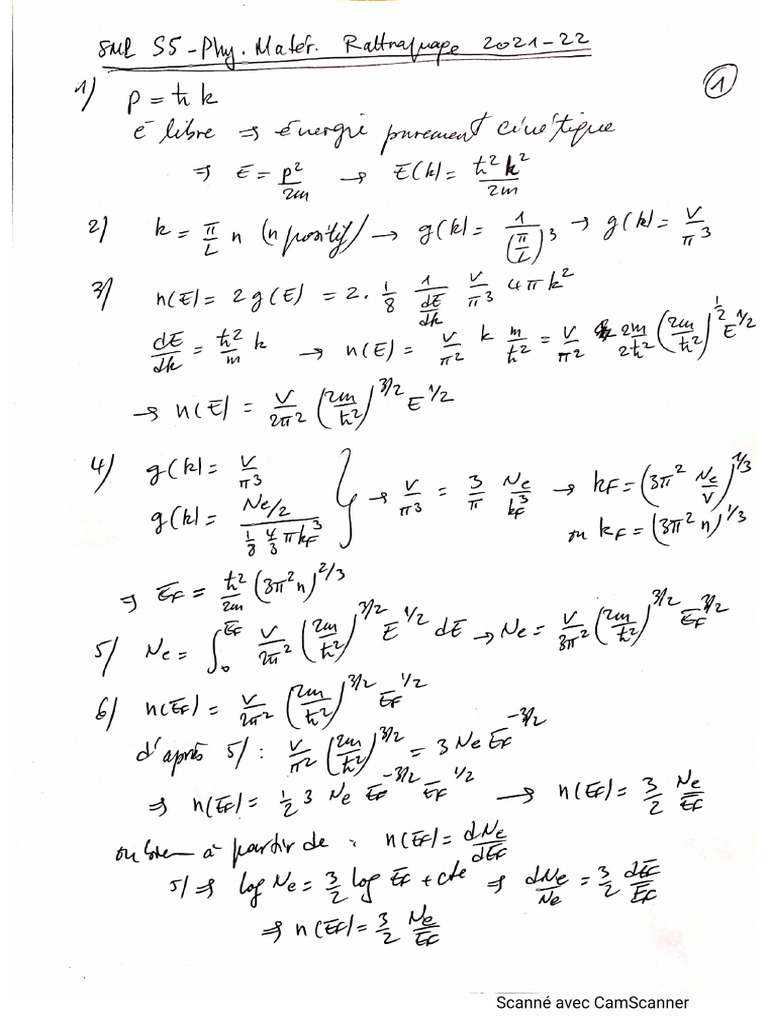 SMP S5 - Phy. Matér. Rattrapage 2021-22
①
1) p = ħ k
é libre ⇒ énergie purement cinétique
⇒ E = p²/2m → E(k) = ħ²k²/2m
2) k = π/L n (n positif) → g(k) = 1/(π/L)³ → g(k) = V/π³
3) n(E) = 2 g(E) = 2 · 1/8 1/(dE/dk) V/π³ 4πk²
dE/dk = ħ²/m k → n(E) = V/π² k m/ħ² = V/π² 2m/2ħ² (2m/ħ²)^1/2 E^1/2
→ n(E) = V/2π² (2m/ħ²)^3/2 E^1/2
4) g(k) = V/π³
g(k) = (Ne/2)/(1/8 4/3 π kF³) } → V/π³ = 3/π Ne/kF³ → kF = (3π² Ne/V)^1/3
ou kF = (3π² n)^1/3
⇒ EF = ħ²/2m (3π²n)^2/3
5) Ne = ∫₀^EF V/2π² (2m/ħ²)^3/2 E^1/2 dE → Ne = V/3π² (2m/ħ²)^3/2 EF^3/2
6) n(EF) = V/2π² (2m/ħ²)^3/2 EF^1/2
d'après 5) : V/π² (2m/ħ²)^3/2 = 3 Ne EF^-3/2
⇒ n(EF) = 1/2 3 Ne EF^-3/2 EF^1/2 → n(EF) = 3/2 Ne/EF
ou bien à partir de : n(EF) = dNe/dEF
5) ⇒ log Ne = 3/2 log EF + cte ⇒ dNe/Ne = 3/2 dEF/EF
⇒ n(EF) = 3/2 Ne/EF
Scanné avec CamScanner